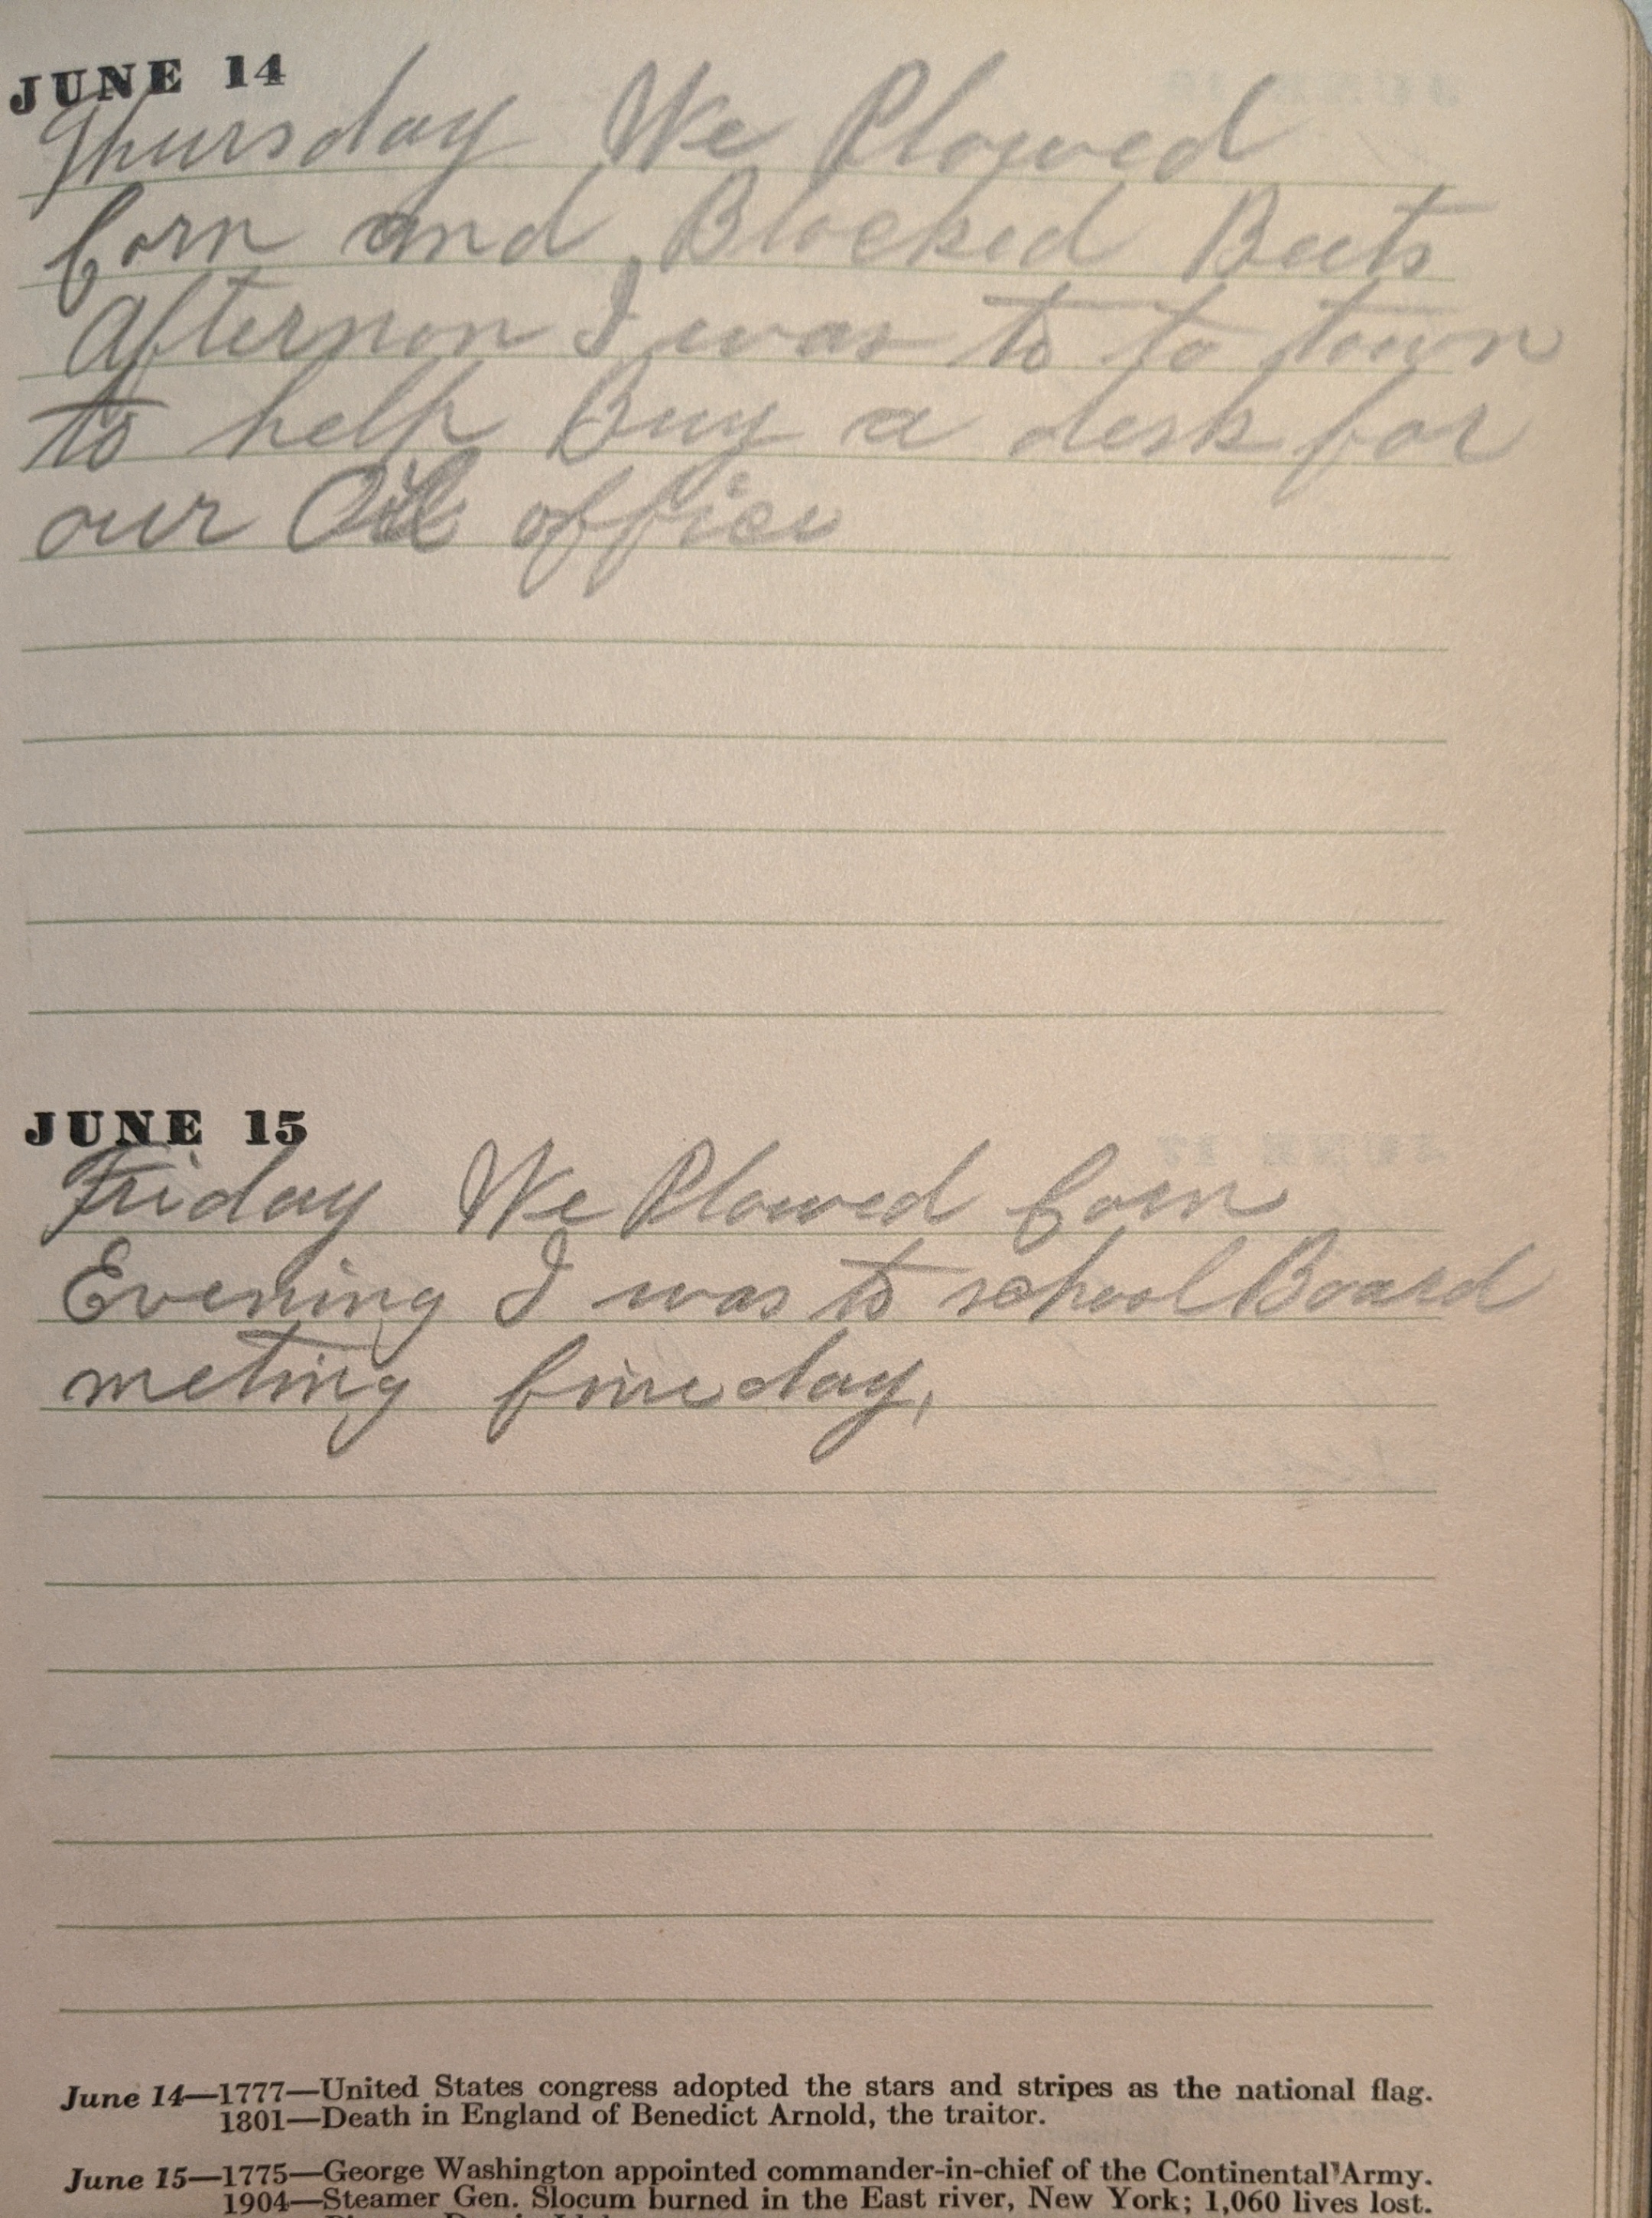 JUNE 14
Thursday We Plowed
Corn and Blocked Beets
Afternon I was to to town
to help Buy a desk for
our Oil office
JUNE 15
Friday We Plowed Corn
Evening I was to school Board
meting fine day,
June 14—1777—United States congress adopted the stars and stripes as the national flag.
1801—Death in England of Benedict Arnold, the traitor.
June 15—1775—George Washington appointed commander-in-chief of the Continental Army.
1904—Steamer Gen. Slocum burned in the East river, New York; 1,060 lives lost.